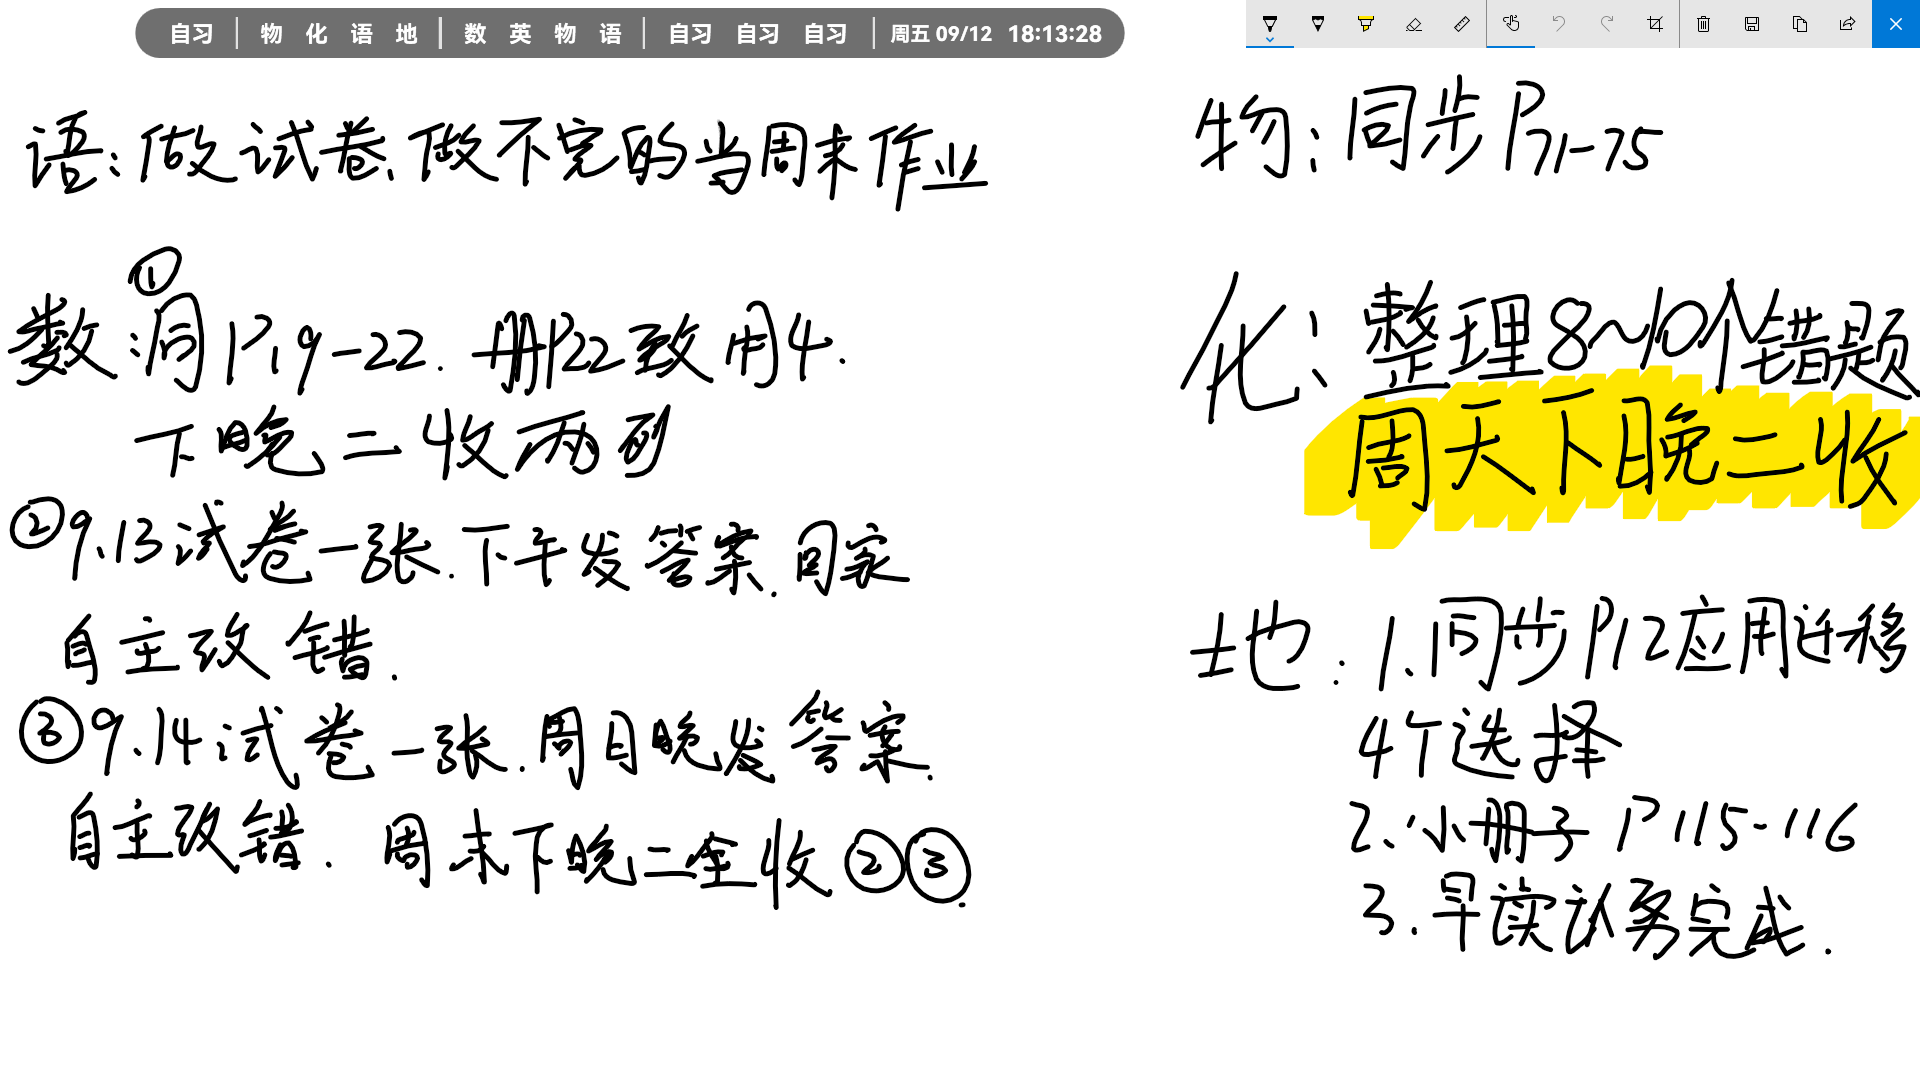 自习 | 物 化 语 地 | 数 英 物 语 | 自习 自习 自习 | 周五 09/12 18:13:28
语:做试卷、做不完的当周末作业
数:①同P19-22. 册P22致用4.
下晚二收两列
②9.13试卷一张.下午发答案.回家
自主改错.
③9.14试卷一张.周日晚发答案.
自主改错. 周末下晚二全收②③.
物:同步P71-75
化:整理8~10个错题
周天下晚二收
地:1.同步P12应用迁移
4个选择
2.小册子P115-116
3.早读认务完成.